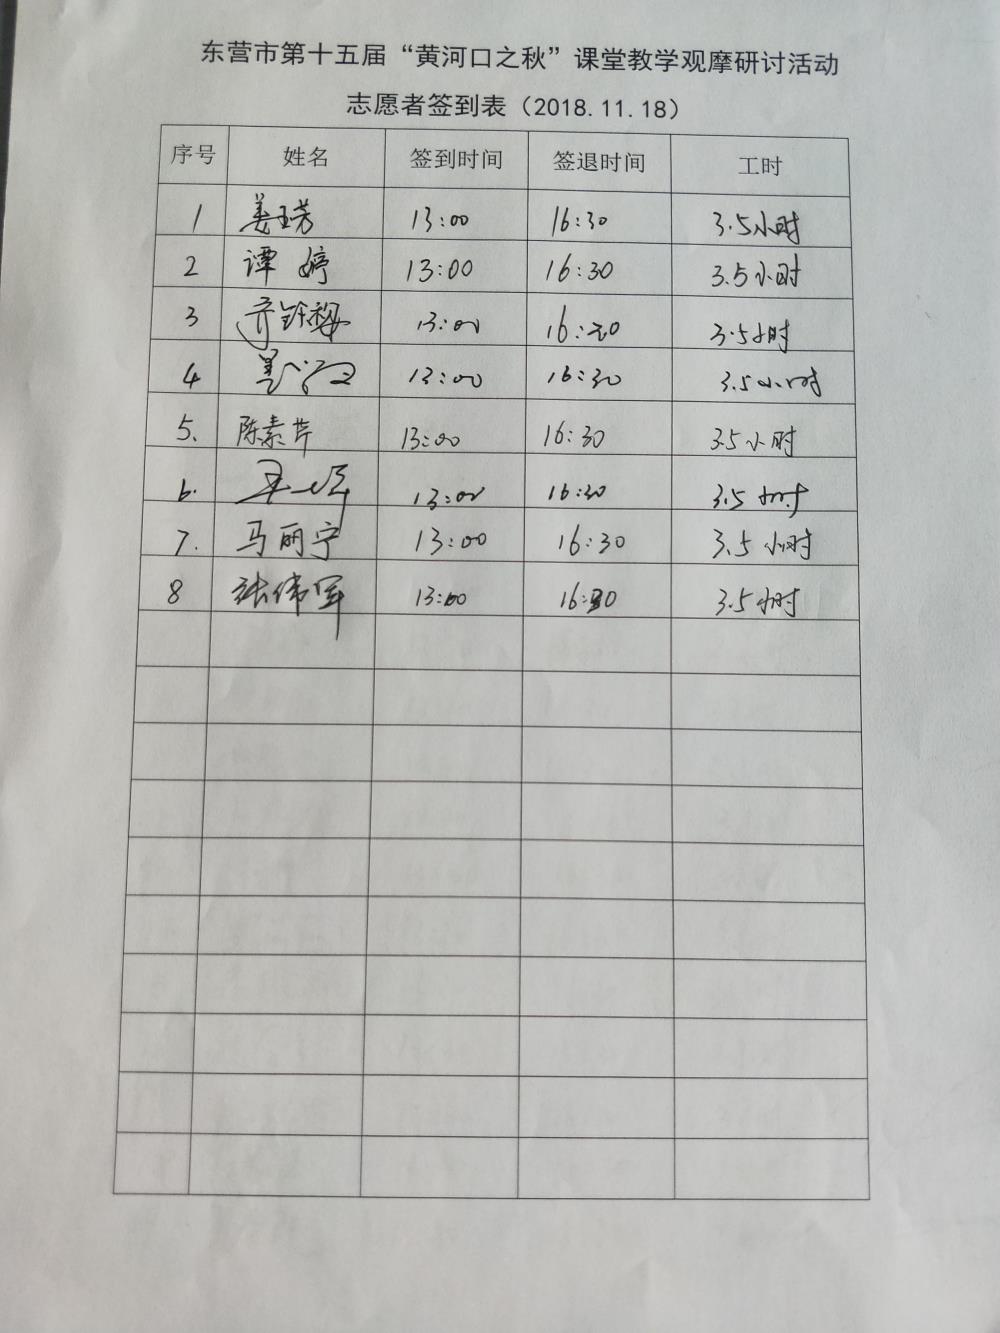 东营市第十五届“黄河口之秋”课堂教学观摩研讨活动
志愿者签到表（2018.11.18）
序号 姓名 签到时间 签退时间 工时
1 姜玉芳 13:00 16:30 3.5小时
2 谭婷 13:00 16:30 3.5小时
3 13:00 16:30 3.5小时
4 13:00 16:30 3.5小时
5. 陈素芹 13:00 16:30 3.5小时
6. 13:00 16:30 3.5小时
7. 马丽宁 13:00 16:30 3.5小时
8 张伟军 13:00 16:30 3.5小时